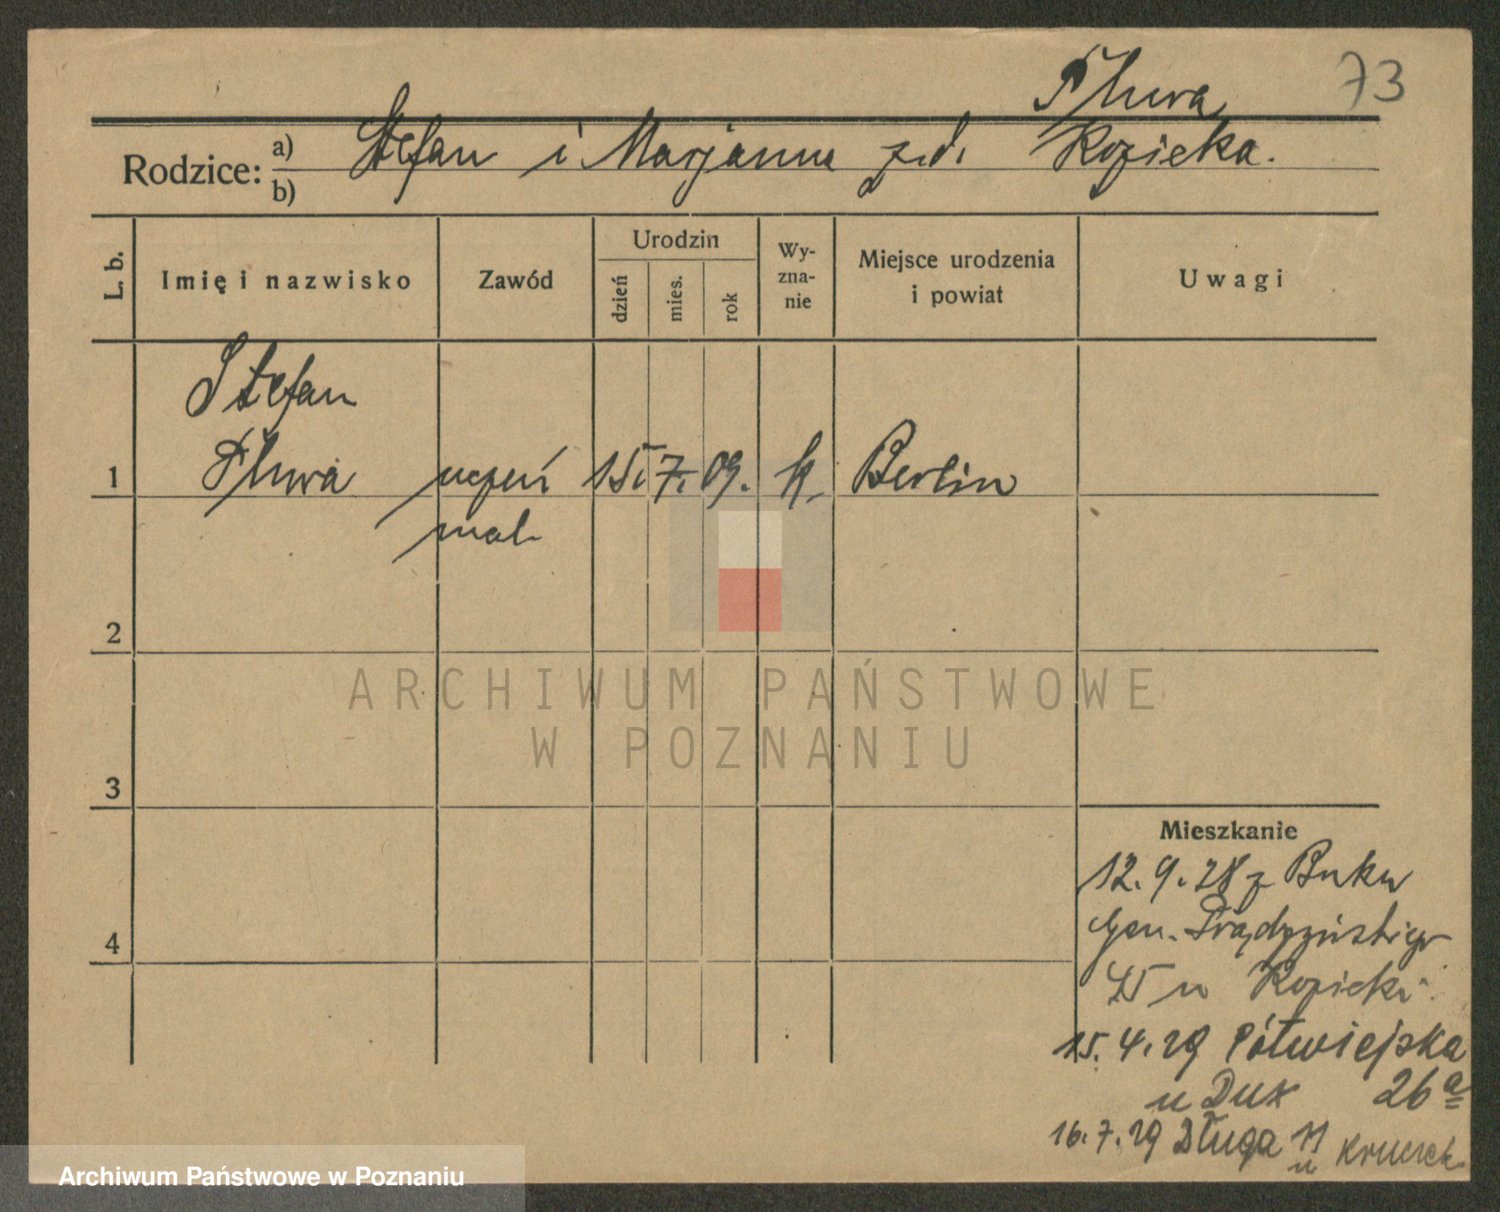 73
Rodzice: a) Stefan i Marjanna z.d. Kozicka.
b)
L. b.
Imię i nazwisko
Zawód
Urodzin
dzień
mies.
rok
Wy-
zna-
nie
Miejsce urodzenia
i powiat
Uwagi
Stefan
1 uczeń 15. 7. 09. k. Berlin
mal.
2
3
4
ARCHIWUM PAŃSTWOWE
W POZNANIU
Mieszkanie
12.9.28 z Buku
Gen. Prądzyńskiego
45 u Kozicki.
15.4.29 Półwiejska
u Dux 26a
16.7.29 Długa 11
u
Archiwum Państwowe w Poznaniu